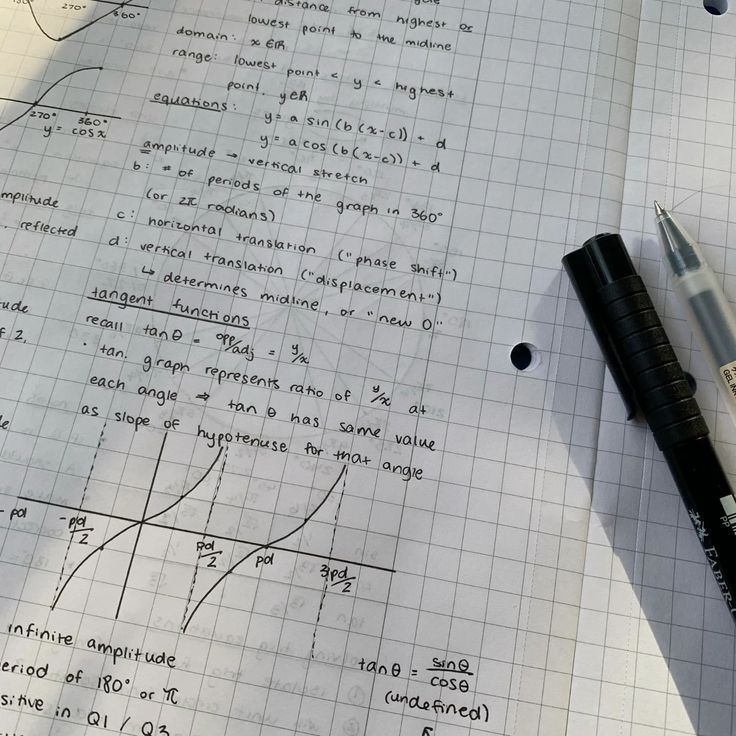 270°
360°
distance from highest or
lowest point to the midline
domain: x ∈ ℝ
range: lowest point < y < highest
point. y∈ℝ
equations:
y = a sin (b (x-c)) + d
y = a cos (b (x-c)) + d
270° 360°
y = cos x
amplitude → vertical stretch
b: # of periods of the graph in 360°
(or 2π radians)
c: horizontal translation ("phase shift")
d: vertical translation ("displacement")
↳ determines midline, or "new 0"
mplitude
reflected
tude
f 2.
tangent functions
recall tan θ = opp/adj = y/x
· tan. graph represents ratio of y/x at
each angle ⇒ tan θ has same value
as slope of hypotenuse for that angle
- pd
-pd/2
pd/2
pd
3pd/2
infinite amplitude
eriod of 180° or π
sitive in Q1 / Q3
tan θ = sin θ/cos θ
(undefined)
GELINK
FABER-C